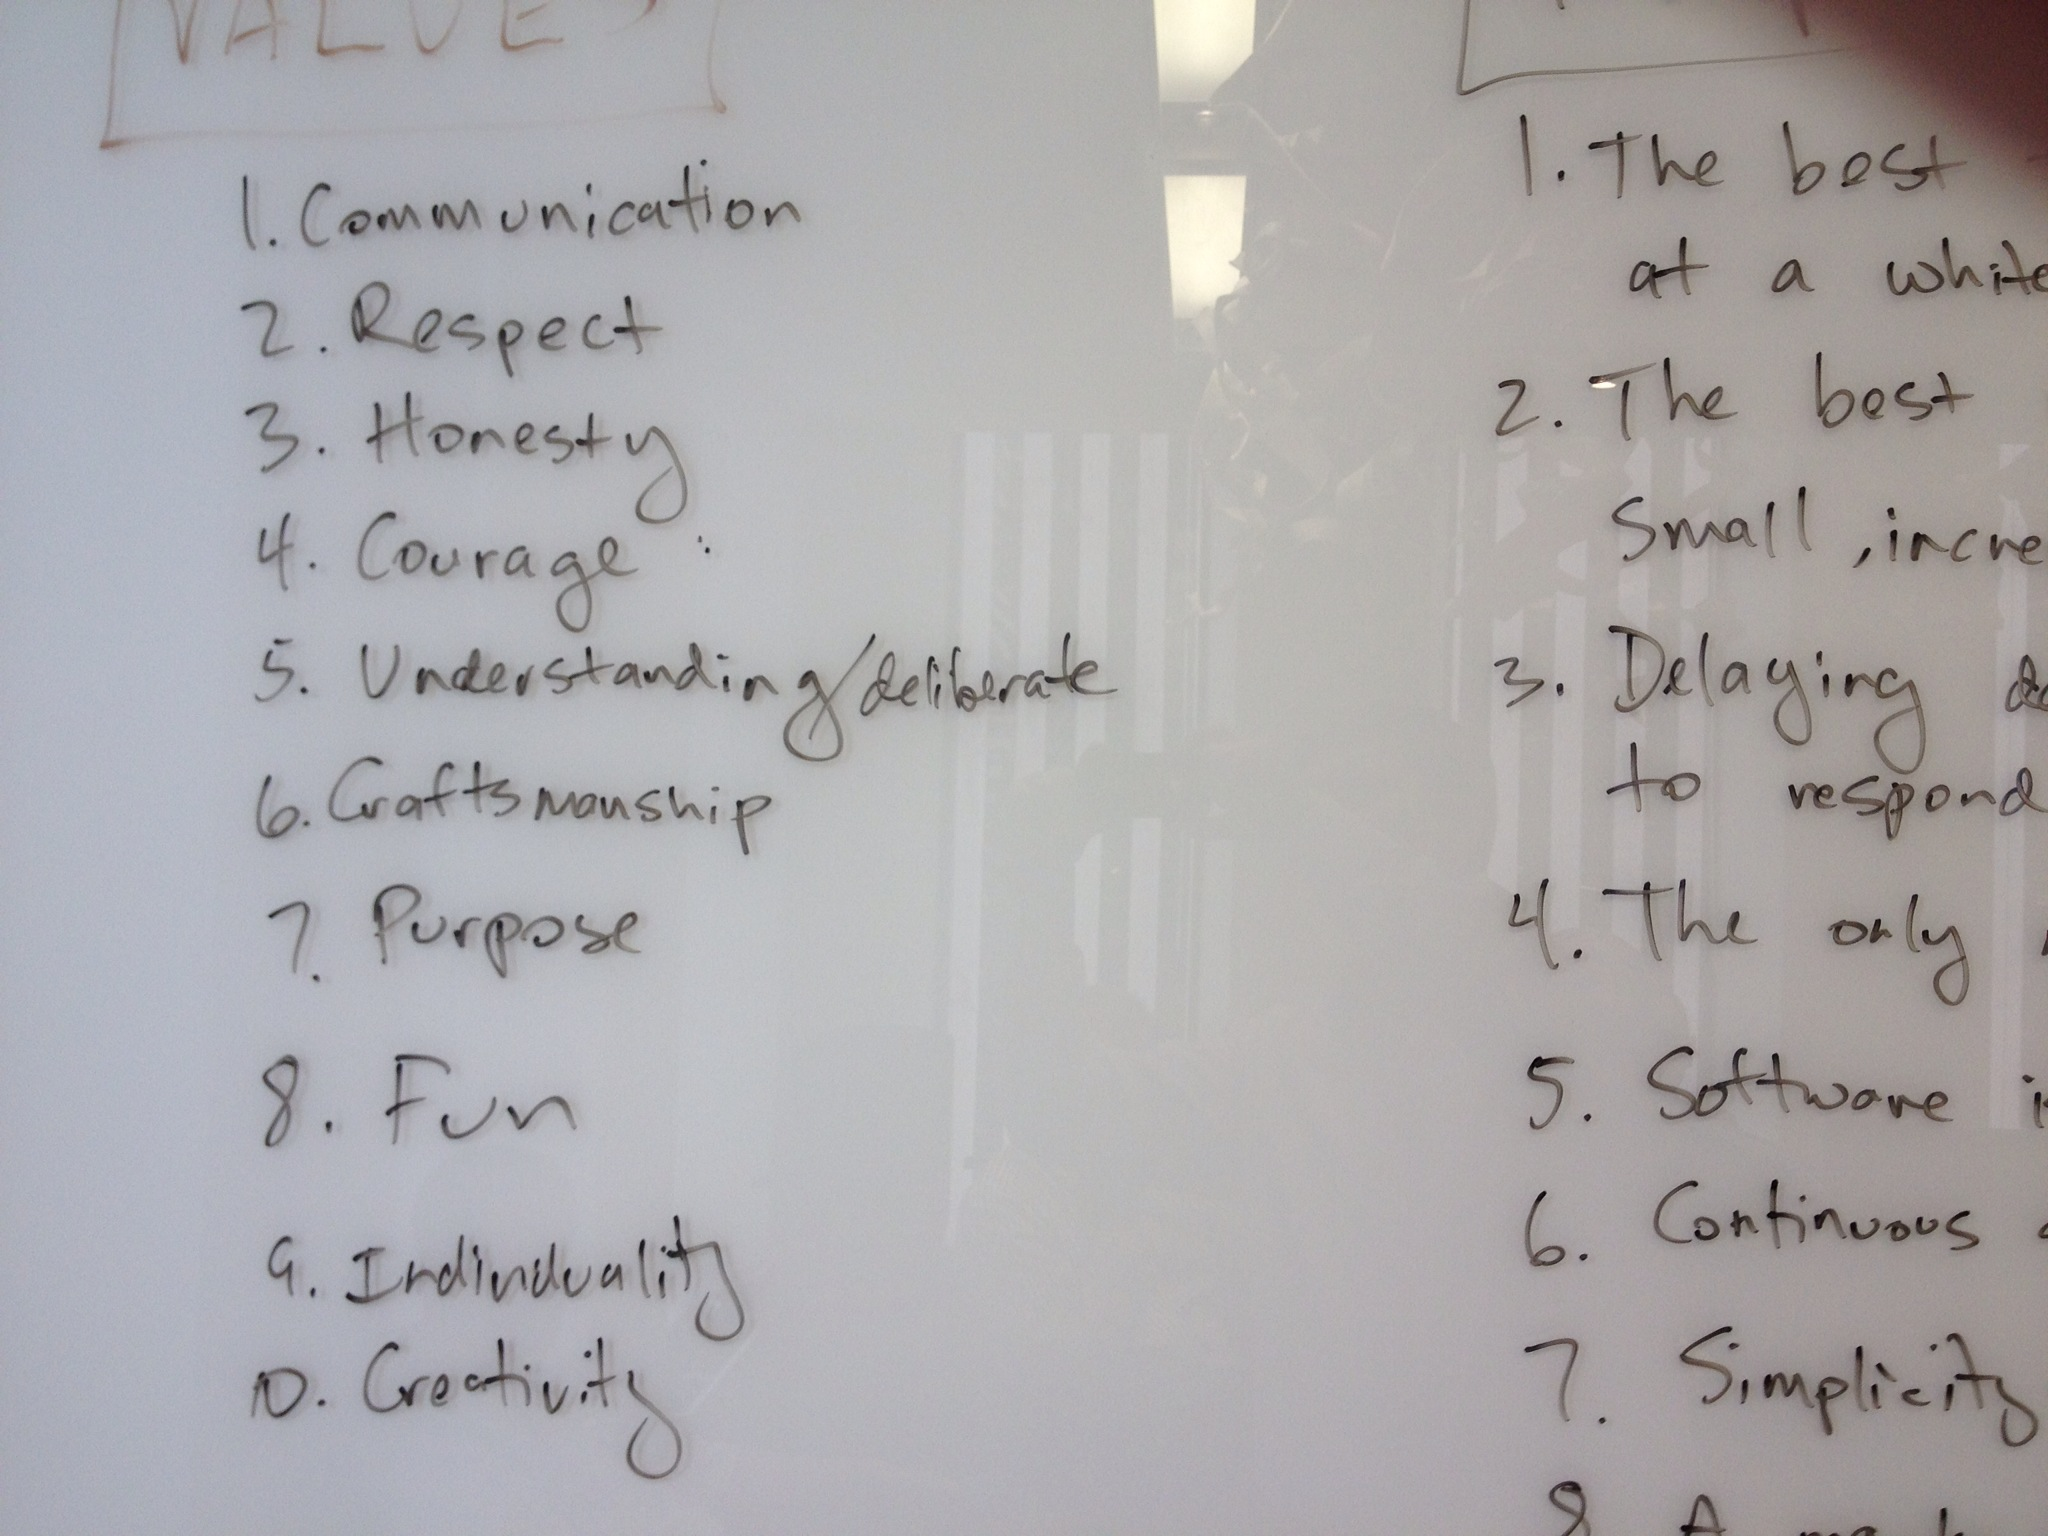 VALUES
1. Communication
2. Respect
3. Honesty
4. Courage
5. Understanding/deliberate
6. Craftsmanship
7. Purpose
8. Fun
9. Individuality
10. Creativity
1. The best
at a white
2. The best
Small, incre
3. Delaying
to respond
4. The only
5. Software
6. Continuous
7. Simplicity
8. A